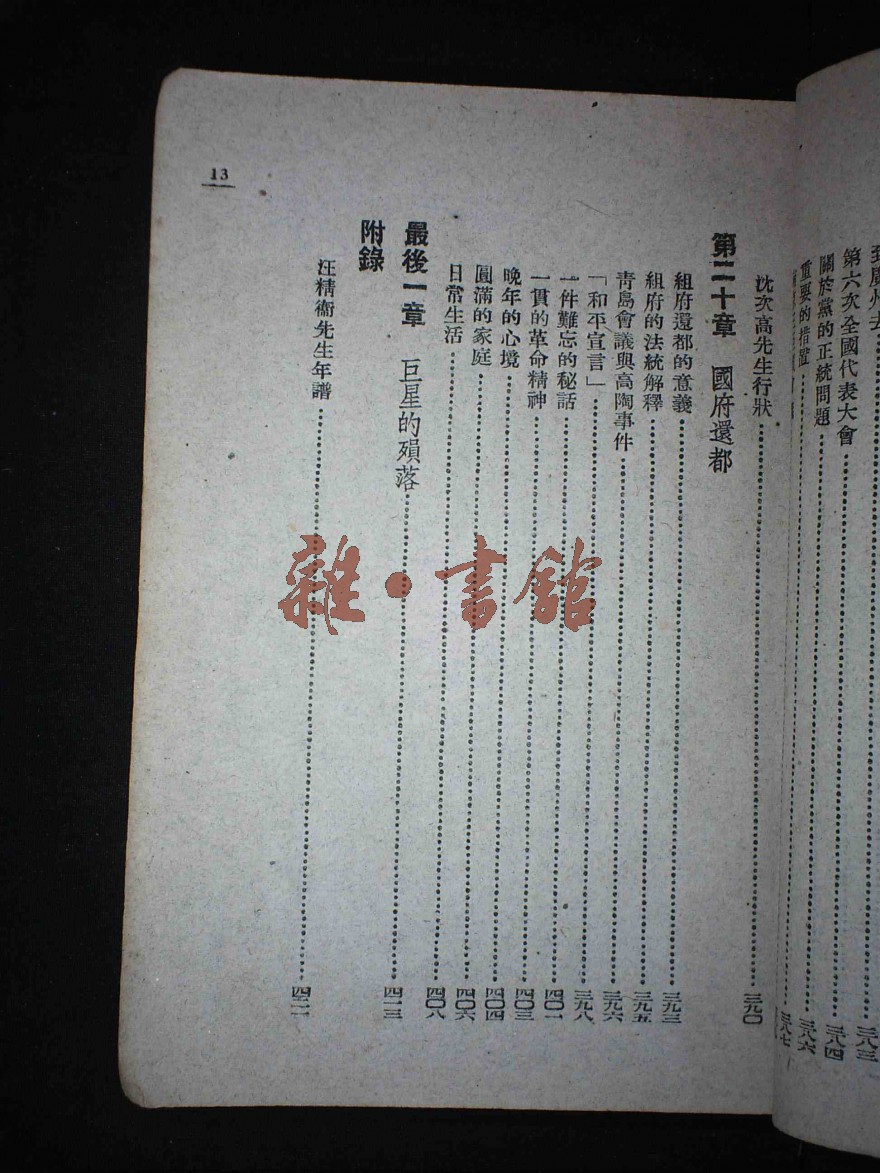 到廣州去………三八三
第六次全國代表大會………三八四
關於黨的正統問題………三八六
重要的措置………三八七
沈次高先生行狀………三九〇
第二十章 國府還都
組府還都的意義………三九三
組府的法統解釋………三九五
青島會議與高陶事件………三九六
「和平宣言」………三九八
一件難忘的秘話………四〇一
一貫的革命精神………四〇三
晚年的心境………四〇四
圓滿的家庭………四〇六
日常生活………四〇八
最後一章 巨星的殞落………四一三
附錄
汪精衞先生年譜………四二一
13
雜·書館